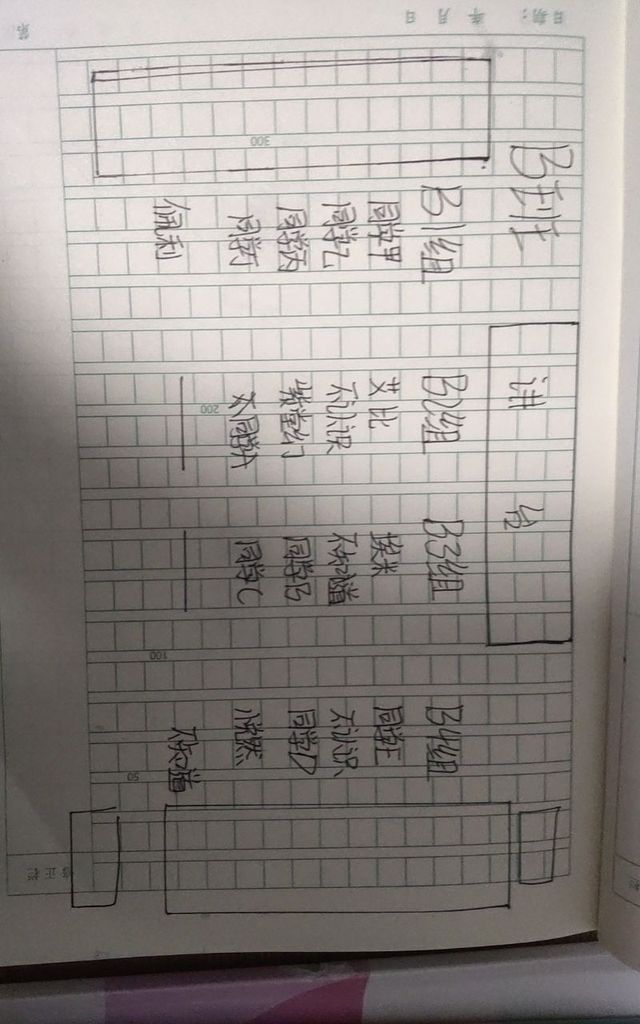 B班
讲台
B1组 B2组 B3组 B4组
同学甲 艾比 埃米 同学E
同学乙 不认识 不知道 不认识
同学丙 紫堂幻 同学B 同学D
同学丁 同学A 同学C
佩利 不知道
日期： 年 月 日
第
300
200
100
50
修正栏